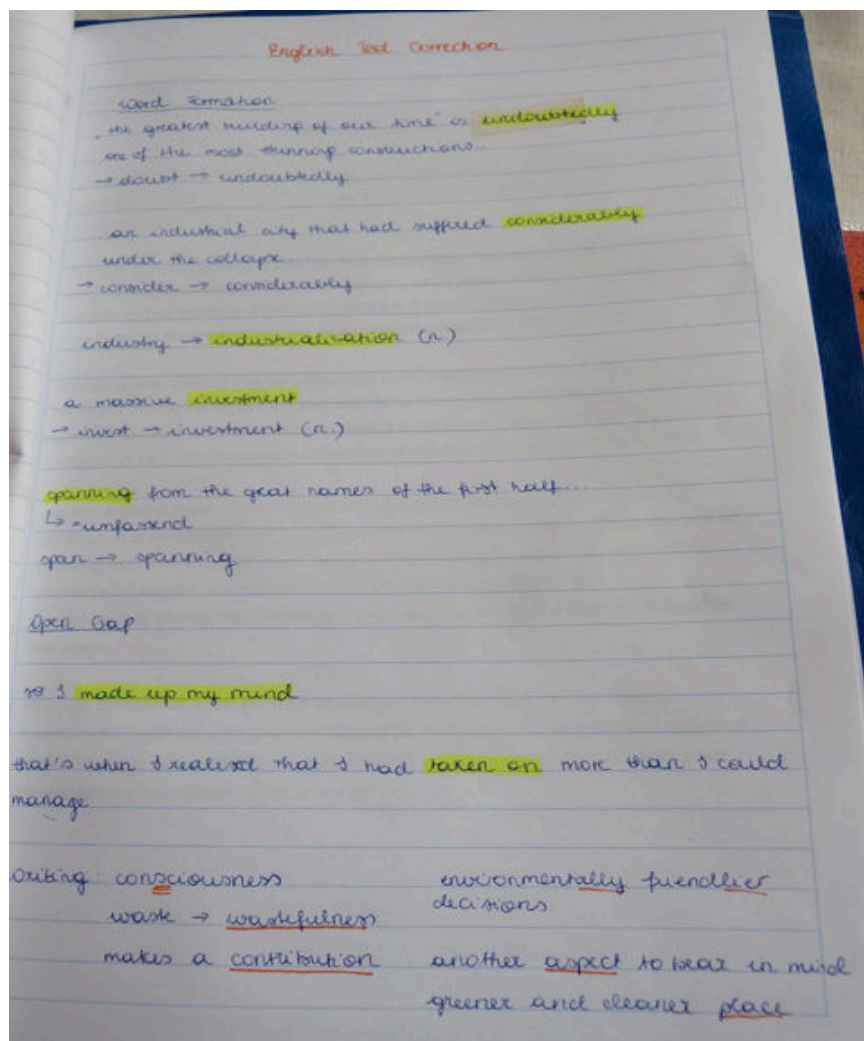 English Test Correction
Word Formation
"the greatest building of our time" is undoubtedly
one of the most stunning constructions...
→ doubt → undoubtedly
an industrial city that had suffered considerably
under the collapse...
→ consider → considerably
industry → industrialisation (n.)
a massive investment
→ invest → investment (n.)
spanning from the great names of the first half....
↳ = umfassend
span → spanning
Open Gap
so I made up my mind
that's when I realized that I had taken on more than I could
manage
Writing: consciousness
waste → wastefulness
makes a contribution
environmentally friendlier
decisions
another aspect to bear in mind
greener and cleaner place